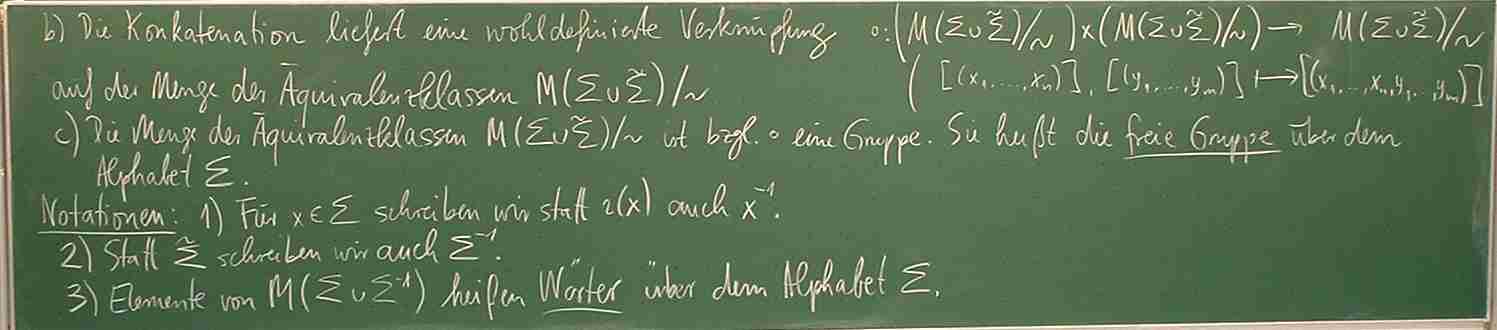 b) Die Konkatenation liefert eine wohldefinierte Verknüpfung ∘: (M(Σ∪Σ̃)/~) × (M(Σ∪Σ̃)/~) → M(Σ∪Σ̃)/~
auf der Menge der Äquivalenzklassen M(Σ∪Σ̃)/~ ([(x₁,...,xₙ)], [(y₁,...,yₘ)] ↦ [(x₁,...,xₙ,y₁,...,yₘ)]
c) Die Menge der Äquivalenzklassen M(Σ∪Σ̃)/~ ist bzgl. ∘ eine Gruppe. Sie heißt die freie Gruppe über dem
Alphabet Σ.
Notationen: 1) Für x ∈ Σ schreiben wir statt ι(x) auch x⁻¹.
2) Statt Σ̃ schreiben wir auch Σ⁻¹.
3) Elemente von M(Σ∪Σ⁻¹) heißen Wörter über dem Alphabet Σ.